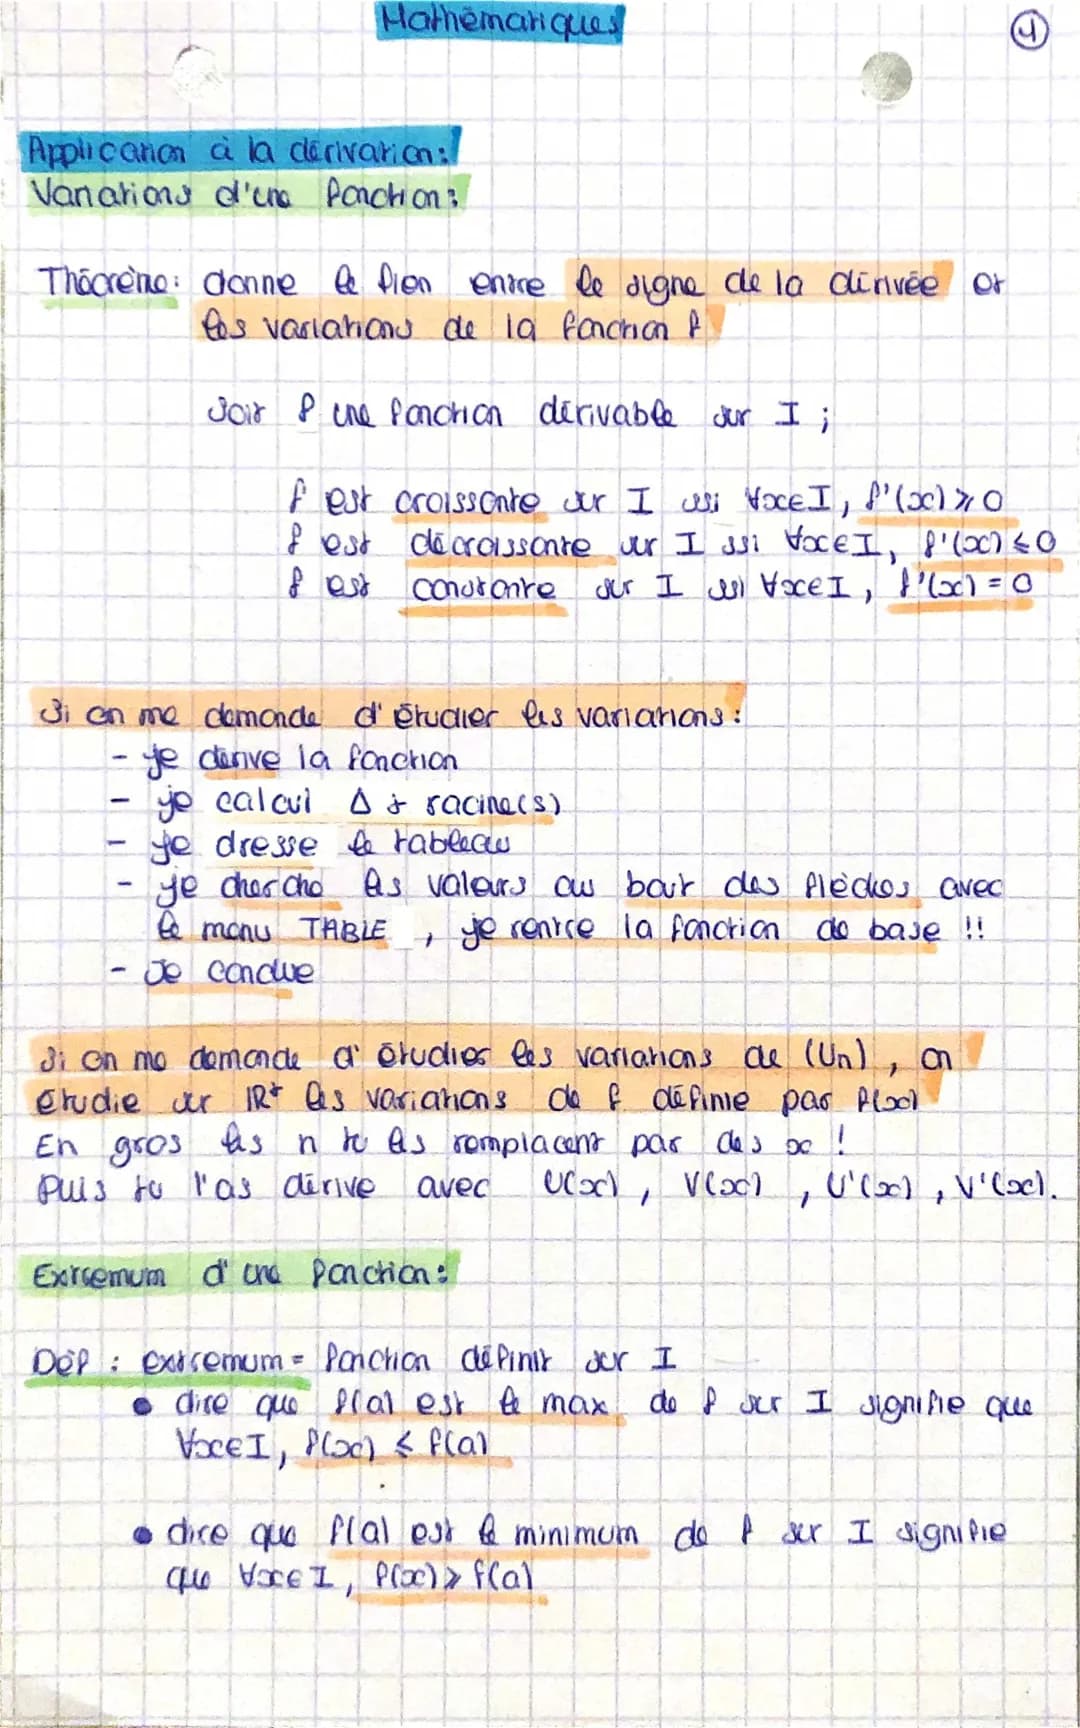 Mathématiques
1
Application à la dérivation:
Variations d'une fonction:
Théorème: donne le lien entre le signe de la dérivée et
les variations de la fonction f
Soit f une fonction dérivable sur I ;
f est croissante sur I ssi ∀x∈I, f'(x) ⩾ 0
f est décroissante sur I ssi ∀x∈I, f'(x) ⩽ 0
f est constante sur I ssi ∀x∈I, f'(x) = 0
Si on me demande d'étudier les variations:
- je dérive la fonction
- je calcul Δ & racine(s)
- je dresse le tableau
- je cherche les valeurs au bout des flèches avec
le menu TABLE , je rentre la fonction de base !!
- Je conclue
Si on me demande d'étudier les variations de (Un), on
étudie sur IR+ les variations de f définie par f(x)
En gros les n tu les remplacent par des x !
Puis tu l'as dérive avec U(x), V(x), U'(x), V'(x).
Extremum d'une fonction:
Déf : extremum = fonction définit sur I
• dire que f(a) est le max de f sur I signifie que
∀x∈I, f(x) ⩽ f(a)
• dire que f(a) est le minimum de f sur I signifie
que ∀x∈I, f(x) ⩾ f(a)